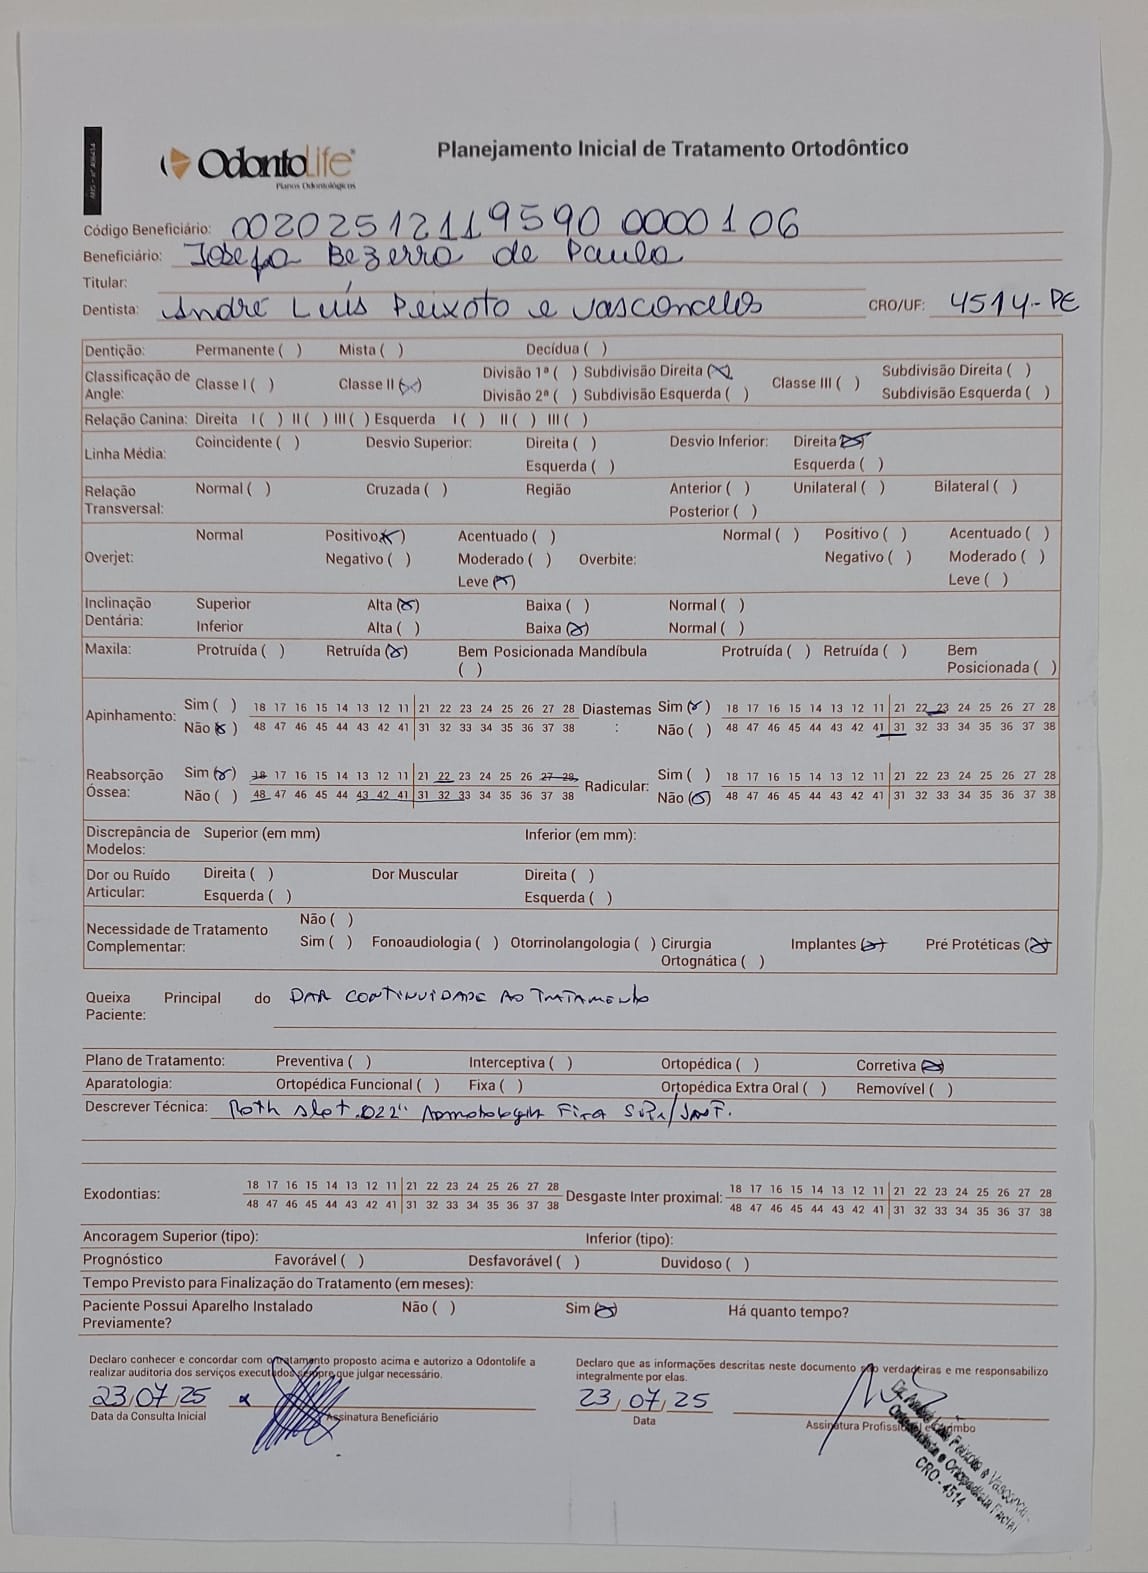 ANS - nº 406414
OdontoLife®
Planos Odontológicos
Planejamento Inicial de Tratamento Ortodôntico
Código Beneficiário: 00202512119590 0000106
Beneficiário: Josefa Bezerra de Paula
Titular:
Dentista: André Luís Peixoto e Vasconcelos CRO/UF: 4514-PE
Dentição: Permanente ( ) Mista ( ) Decídua ( )
Classificação de Angle: Classe I ( ) Classe II (x) Divisão 1ª ( ) Subdivisão Direita (x) Classe III ( ) Subdivisão Direita ( )
Divisão 2ª ( ) Subdivisão Esquerda ( ) Subdivisão Esquerda ( )
Relação Canina: Direita I ( ) II ( ) III ( ) Esquerda I ( ) II ( ) III ( )
Linha Média: Coincidente ( ) Desvio Superior: Direita ( ) Desvio Inferior: Direita (x)
Esquerda ( ) Esquerda ( )
Relação Transversal: Normal ( ) Cruzada ( ) Região Anterior ( ) Unilateral ( ) Bilateral ( )
Posterior ( )
Overjet: Normal Positivo (x) Acentuado ( ) Overbite: Normal ( ) Positivo ( ) Acentuado ( )
Negativo ( ) Moderado ( ) Negativo ( ) Moderado ( )
Leve (x) Leve ( )
Inclinação Dentária: Superior Alta (x) Baixa ( ) Normal ( )
Inferior Alta ( ) Baixa (x) Normal ( )
Maxila: Protruída ( ) Retruída (x) Bem Posicionada ( ) Mandíbula Protruída ( ) Retruída ( ) Bem Posicionada ( )
Apinhamento: Sim ( ) 18 17 16 15 14 13 12 11 21 22 23 24 25 26 27 28 Diastemas : Sim (x) 18 17 16 15 14 13 12 11 21 22 23 24 25 26 27 28
Não (x) 48 47 46 45 44 43 42 41 31 32 33 34 35 36 37 38 Não ( ) 48 47 46 45 44 43 42 41 31 32 33 34 35 36 37 38
Reabsorção Óssea: Sim (x) 18 17 16 15 14 13 12 11 21 22 23 24 25 26 27 28 Radicular: Sim ( ) 18 17 16 15 14 13 12 11 21 22 23 24 25 26 27 28
Não ( ) 48 47 46 45 44 43 42 41 31 32 33 34 35 36 37 38 Não (x) 48 47 46 45 44 43 42 41 31 32 33 34 35 36 37 38
Discrepância de Modelos: Superior (em mm) Inferior (em mm):
Dor ou Ruído Articular: Direita ( ) Dor Muscular Direita ( )
Esquerda ( ) Esquerda ( )
Necessidade de Tratamento Complementar: Não ( )
Sim ( ) Fonoaudiologia ( ) Otorrinolangologia ( ) Cirurgia Ortognática ( ) Implantes (x) Pré Protéticas (x)
Queixa Principal do Paciente: DAR CONTINUIDADE AO TRATAMENTO
Plano de Tratamento: Preventiva ( ) Interceptiva ( ) Ortopédica ( ) Corretiva (x)
Aparatologia: Ortopédica Funcional ( ) Fixa ( ) Ortopédica Extra Oral ( ) Removível ( )
Descrever Técnica: Roth slot .022" Aparatologia Fixa SUP./INF.
Exodontias: 18 17 16 15 14 13 12 11 21 22 23 24 25 26 27 28 Desgaste Inter proximal: 18 17 16 15 14 13 12 11 21 22 23 24 25 26 27 28
48 47 46 45 44 43 42 41 31 32 33 34 35 36 37 38 48 47 46 45 44 43 42 41 31 32 33 34 35 36 37 38
Ancoragem Superior (tipo): Inferior (tipo):
Prognóstico Favorável ( ) Desfavorável ( ) Duvidoso ( )
Tempo Previsto para Finalização do Tratamento (em meses):
Paciente Possui Aparelho Instalado Previamente? Não ( ) Sim (x) Há quanto tempo?
Declaro conhecer e concordar com o tratamento proposto acima e autorizo a Odontolife a
realizar auditoria dos serviços executados sempre que julgar necessário.
23/07/25 x
Data da Consulta Inicial Assinatura Beneficiário
Declaro que as informações descritas neste documento são verdadeiras e me responsabilizo
integralmente por elas.
23/07/25
Data Assinatura Profissional e Carimbo
Dr. André Luís Peixoto e Vasconcelos
Ortodontista e Ortopedista Facial
CRO - 4514